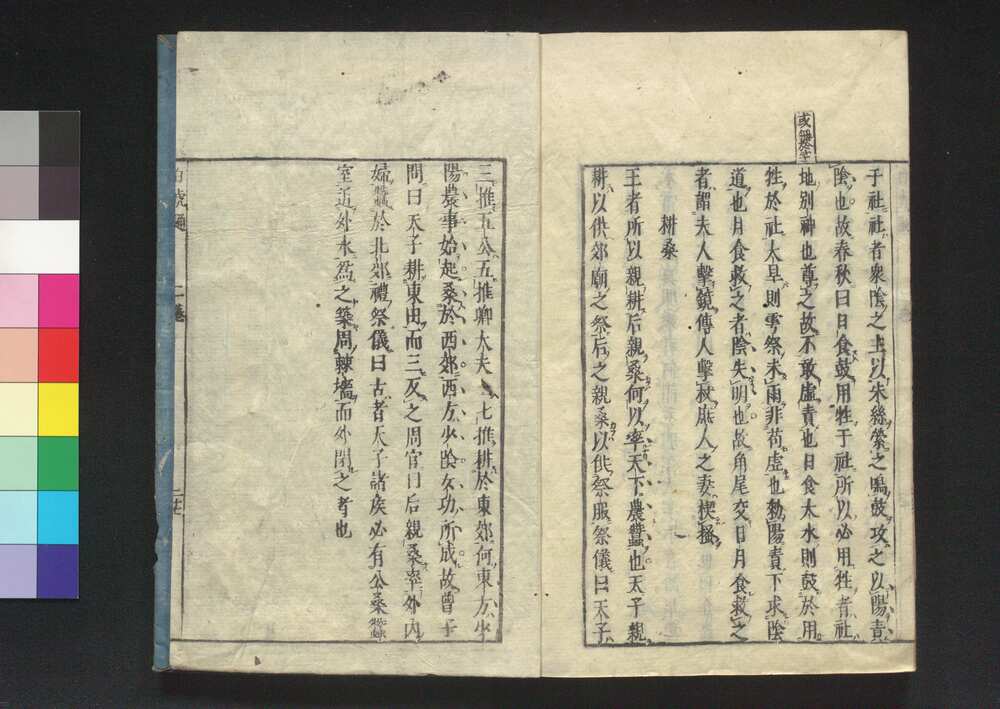 于社社者衆陰之主以朱絲縈之鳴鼓攻之以陽責
陰也故春秋曰日食鼓用牲于社所以必用牲者社
地別神也尊之故不敢虛責也日食大水則鼓於用
牲於社大旱則雩祭未雨非苟虛也勅陽責下求陰
道也月食救之者陰失明也故角尾交日月食救之
者謂夫人擊鏡傳人擊杖庶人之妻楔搔
耕桑
王者所以親耕后親桑何以率天下農蠶也天子親
耕以供郊廟之祭后之親桑以供祭服祭儀曰天子
三推五公五推卿大夫士七推耕於東郊何東方少
陽農事始起桑於西郊西方少陰女功所成故曾子
問曰天子耕東田而三反之周官曰后親桑率外內
婦蠶於北郊禮祭儀曰古者天子諸侯必有公桑蠶
室近外水爲之築周棘墻而外閉之者也
白虎通 二卷